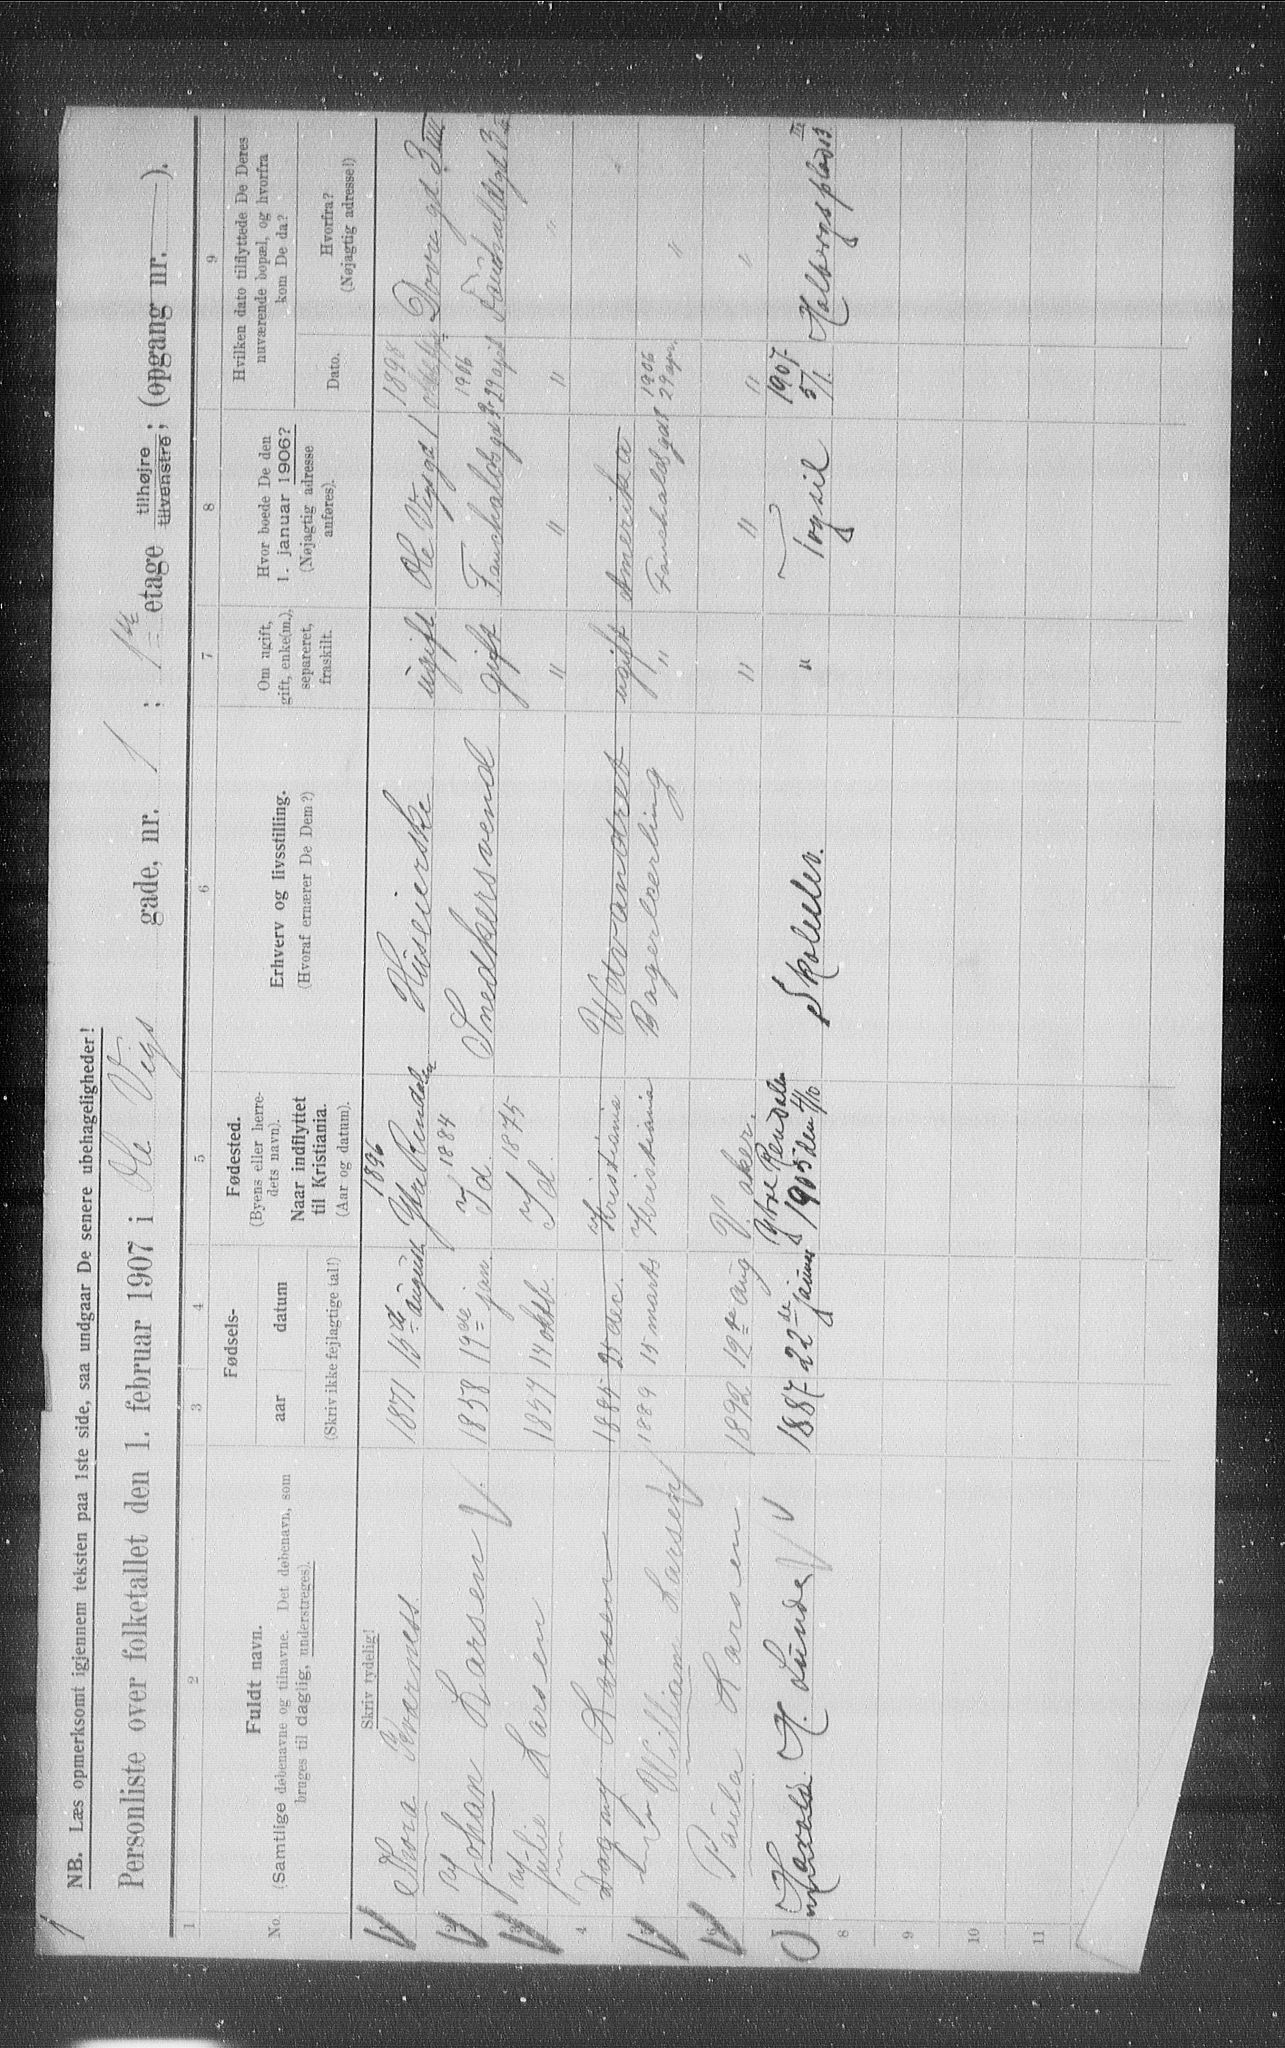 1
NB. Læs opmerksomt igjennem teksten paa 1ste side, saa undgaar De senere ubehageligheder!
Personliste over folketallet den 1. februar 1907 i Ole Vigs gade, nr. 1 ; 1ste etage tilhøjre tilvenstre; (opgang nr. ).
1 2 3 4 5 6 7 8 9
No.
Fuldt navn.
(Samtlige døbenavne og tilnavne. Det døbenavn, som
bruges til daglig, understreges).
Fødsels-
aar datum
(Skriv ikke fejlagtige tal!)
Fødested.
(Byens eller herre-
dets navn).
Naar indflyttet
til Kristiania.
(Aar og datum).
Erhverv og livsstilling.
(Hvoraf ernærer De Dem?)
Om ugift,
gift, enke(m.),
separeret,
fraskilt.
Hvor boede De den
1. januar 1906?
(Nøjagtig adresse
anføres).
Hvilken dato tilflyttede De Deres
nuværende bopæl, og hvorfra
kom De da?
Dato.
Hvorfra?
(Nøjagtig adresse!)
Skriv tydelig!
Thora 1871 15de august 1896 Ytre Rendalen Huseierske ugift Ole Vigs gd 1 1898 Dovre gd. 3
Johan Larsen 1858 19de jan. Id 1884 Snedkersvend gift 1906 29 april
Julie Larsen 14 oktb. Id. 1875 " " " "
4 Dagmy Larsen 1885 25 dec. Kristiania Udvandret ugift Amerika "
William Larsen 1889 15 marts Kristiania Bagerlærling " 1906 29 apr. "
Paula Larsen 1892 19de aug V. aker. " " " "
Harald H. Lunde 1887 22de januar Ytre Rendalen 1905 den 4/10 Skoleelev. " Trysil 1907 5/1. Holbergsplads 3 III
8
9
10
11